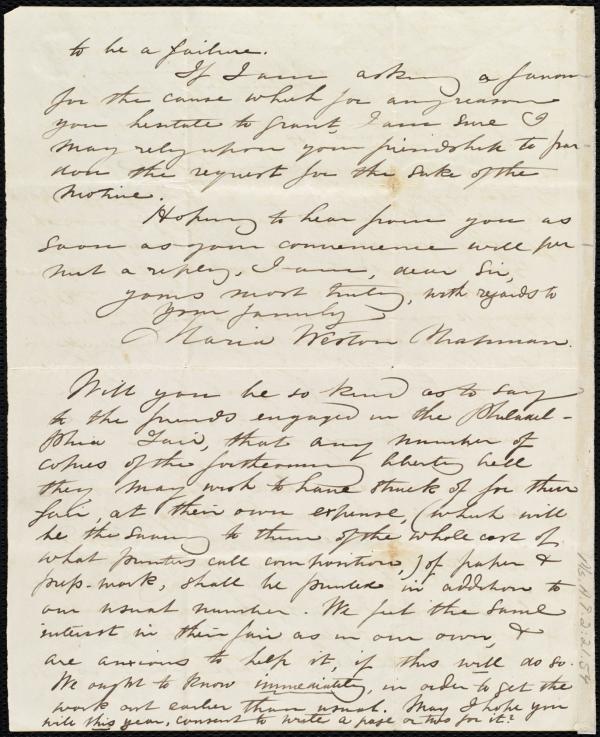 to be a failure.
If I am asking a favor
for the cause which for any reason
you hesitate to grant, I am sure I
may rely upon your friendship to par-
don the request for the sake of the
motive.
Hoping to hear from you as
soon as your convenience will per-
mit a reply, I am, dear Sir,
yours most truly, with regards to
your family
Maria Weston Chapman.
Will you be so kind as to say
to the friends engaged in the Philadel-
phia Fair, that any number of
copies of the forthcoming liberty bell
they may wish to have struck of for their
fair, at their own expense, (which will
be the saving to them of the whole cost of
what printers call composition,) of paper &
press-work, shall be printed in addition to
our usual number. We feel the same
interest in their fair as in our own, &
are anxious to help it, if this will do so.
We ought to know immediately, in order to get the
work out earlier than usual. May I hope you
will this year, consent to write a page or two for it?
Ms.A.9.2:2154